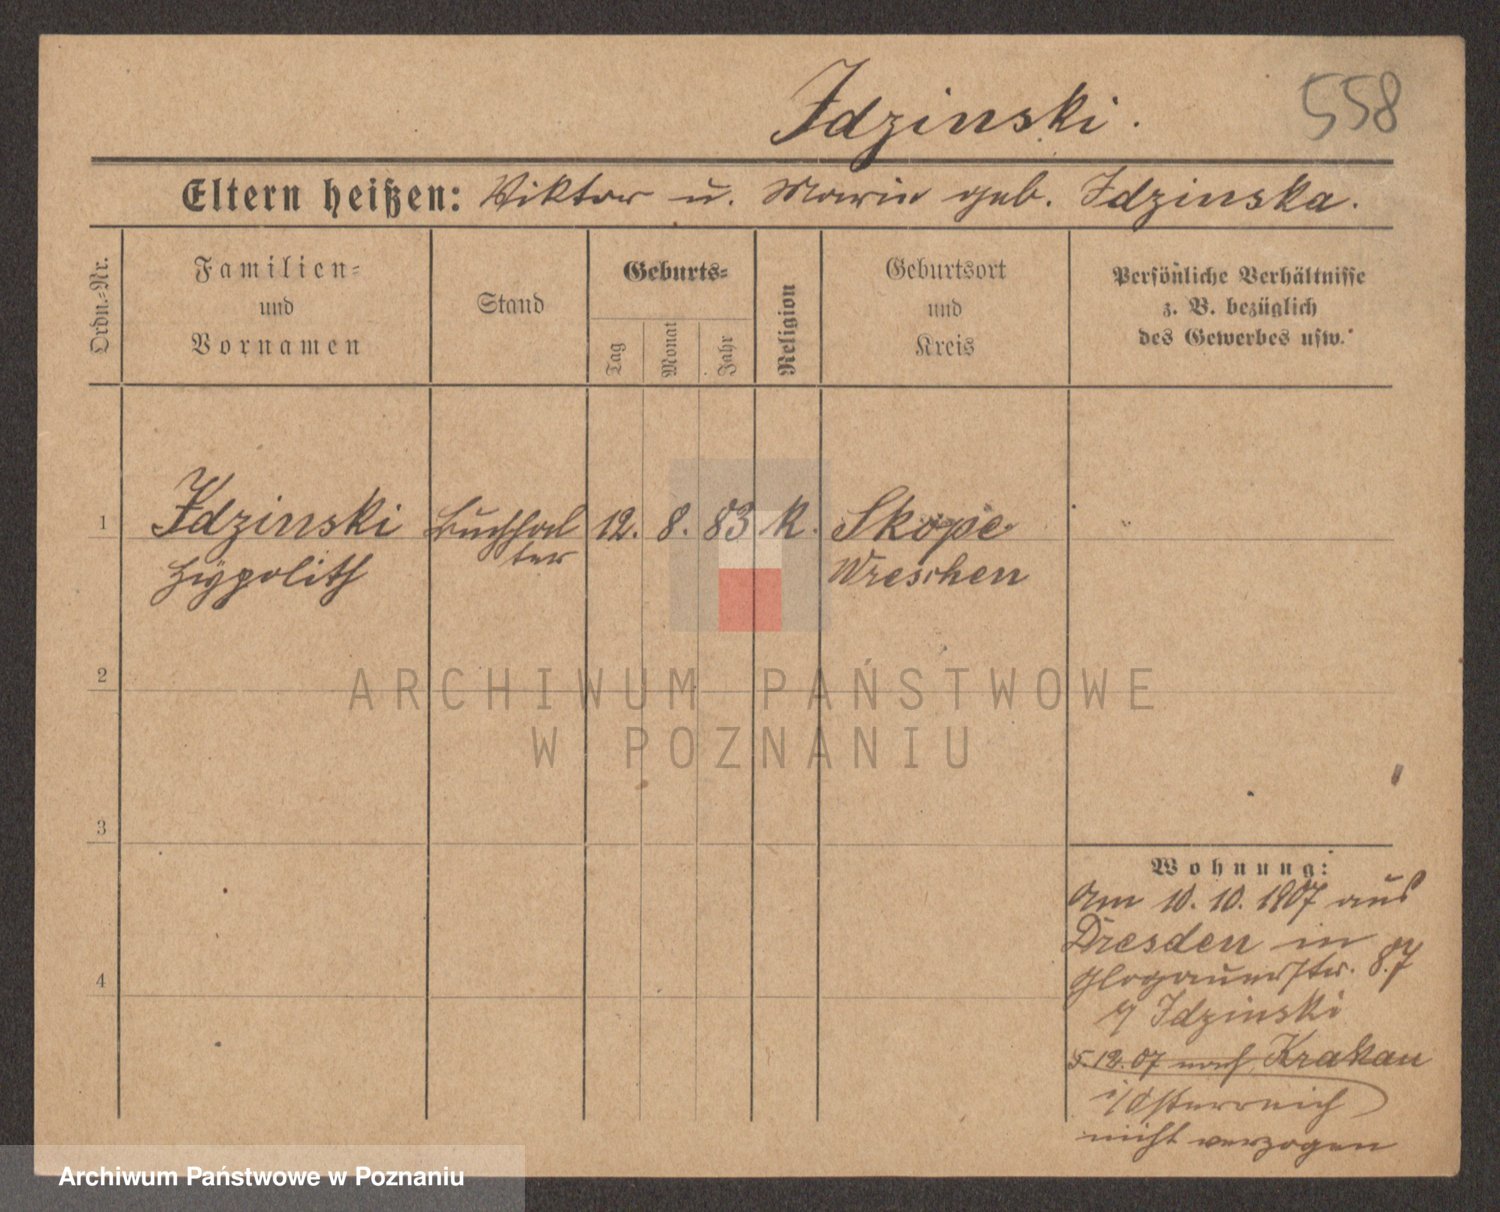 Idzinski.
558
Eltern heißen: Viktor u. Marie geb. Idzinska.
Ordn.-Nr.
Familien-
und
Vornamen
Stand
Geburts-
Tag
Monat
Jahr
Religion
Geburtsort
und
Kreis
Persönliche Verhältnisse
z. B. bezüglich
des Gewerbes usw.
1
Idzinski Buchhal 12. 8. 83 k. Skope
ter
Hypolith Wreschen
2
ARCHIWUM PAŃSTWOWE
W POZNANIU
3
Wohnung:
Am 10. 10. 1907 aus
Dresden in
Glogauerstr. 87
4
Idzinski
5. 12. 07 nach Krakau
i/Österreich
nicht verzogen
Archiwum Państwowe w Poznaniu